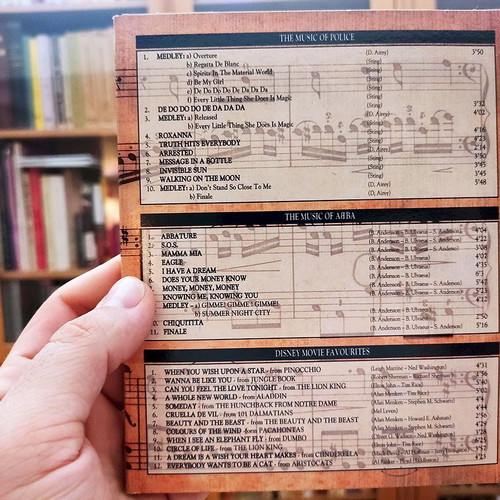 THE MUSIC OF POLICE
1. MEDLEY: a) Overture (D. Airey) 3'50
b) Regatta De Blanc (Sting)
c) Spirits In The Material World (Sting)
d) Be My Girl (Sting)
e) De Do Do Do De Da Da Da (Sting)
f) Every Little Thing She Does Is Magic (Sting)
2. DE DO DO DO DE DA DA DA (Sting) 3'32
3. MEDLEY: a) Released (D. Airey) 4'02
b) Every Little Thing She Does Is Magic (Sting)
4. ROXANNA (Sting) 4'16
5. TRUTH HITS EVERYBODY (Sting) 4'23
6. ARRESTED (D. Airey) 2'14
7. MESSAGE IN A BOTTLE (Sting) 3'50
8. INVISIBLE SUN (Sting) 3'45
9. WALKING ON THE MOON (Sting) 5'48
10. MEDLEY: a) Don't Stand So Close To Me (Sting)
b) Finale (D. Airey)
THE MUSIC OF ABBA
1. ABBATURE (B. Anderson – B. Ulvaeus – S. Anderson) 4'04
2. S.O.S. (B. Anderson – B. Ulvaeus – S. Anderson) 4'22
3. MAMMA MIA (B. Anderson – B. Ulvaeus – S. Anderson) 3'08
4. EAGLE (B. Anderson – B. Ulvaeus) 4'02
5. I HAVE A DREAM (B. Anderson – B. Ulvaeus) 4'35
6. DOES YOUR MONEY KNOW (B. Anderson – B. Ulvaeus) 6'3
7. MONEY, MONEY, MONEY (B. Anderson – B. Ulvaeus)
KNOWING ME, KNOWING YOU (B. Anderson – B. Ulvaeus – S. Anderson) 5'23
MEDLEY – a) GIMME! GIMME! GIMME!
b) SUMMER NIGHT CITY
10. CHIQUITITA (B. Anderson – B. Ulvaeus) 2'50
11. FINALE (B. Anderson – B. Ulvaeus – S. Anderson) 5'16
DISNEY MOVIE FAVOURITES
1. WHEN YOU WISH UPON A STAR - from PINOCCHIO (Leigh Harline – Ned Washington) 4'31
2. WANNA BE LIKE YOU - from JUNGLE BOOK
3. CAN YOU FEEL THE LOVE TONIGHT - from THE LION KING (Elton John – Tim Rice)
4. A WHOLE NEW WORLD - from ALADDIN (Alan Menken – Tim Rice)
5. SOMEDAY - from THE HUNCHBACK FROM NOTRE DAME (Alan Menken – Stephen M. Schwartz)
6. CRUELLA DE VIL - from 101 DALMATIANS (Mel Leven)
7. BEAUTY AND THE BEAST - from THE BEAUTY AND THE BEAST (Alan Menken – Howard E. Ashman)
8. COLOURS OF THE WIND - from PACAHONTAS (Alan Menken – Stephen M. Schwartz)
9. WHEN I SEE AN ELEPHANT FLY - from DUMBO (Oliver G. Wallace – Ned Washington)
10. CIRCLE OF LIFE - from THE LION KING (Elton John – Tim Rice)
11. A DREAM IS A WISH YOUR HEART MAKES - from CINDERELLA
12. EVERYBODY WANTS TO BE A CAT - from ARISTOCATS